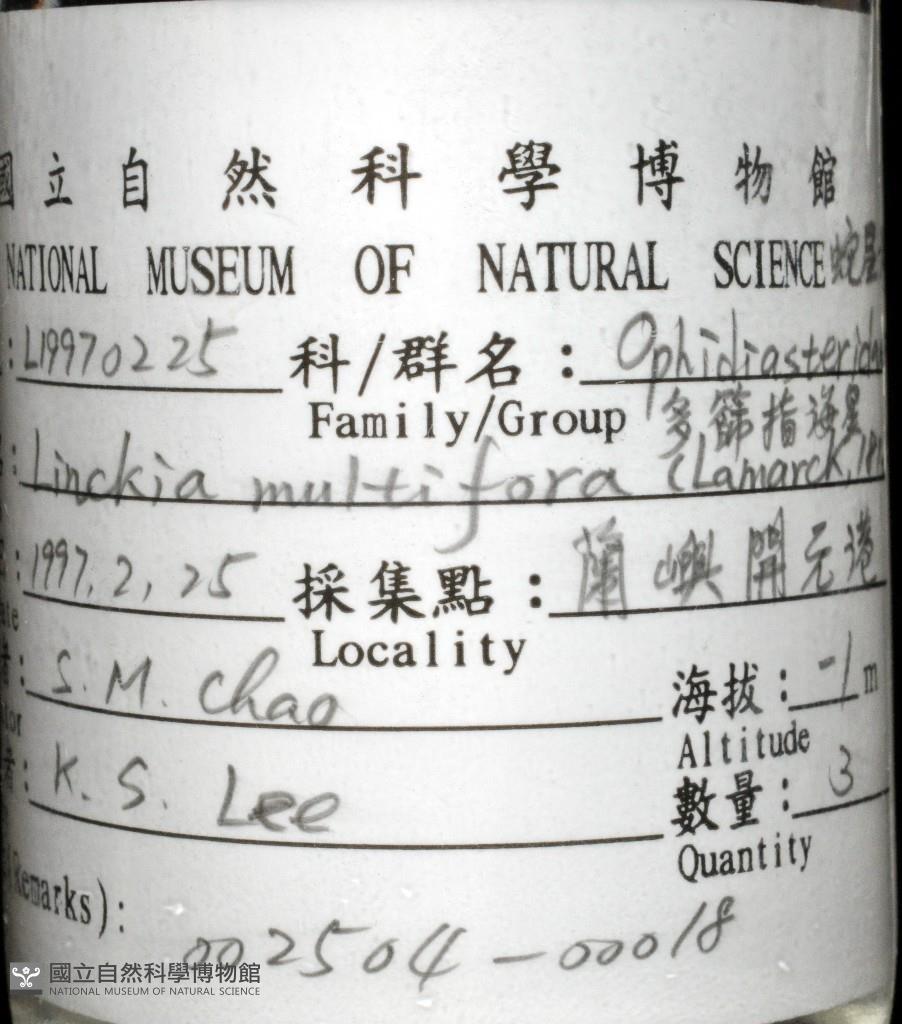 國立自然科學博物館
NATIONAL MUSEUM OF NATURAL SCIENCE 蛇星
: L19970225 科/群名: Ophidiasterida
Family/Group 多篩指海星
: Linckia multifora (Lamarck, 181
: 1997, 2, 25 採集點: 蘭嶼開元港
Locality
者: S. M. Chao 海拔: -1 m
Altitude
者: K. S. Lee 數量: 3
Quantity
Remarks):
002504-00018
國立自然科學博物館
NATIONAL MUSEUM OF NATURAL SCIENCE